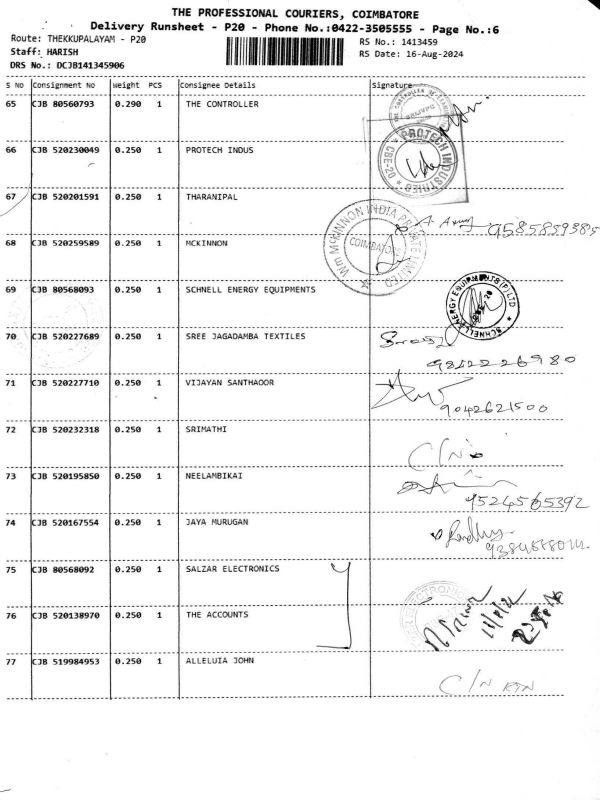 THE PROFESSIONAL COURIERS, COIMBATORE
Delivery Runsheet - P20 - Phone No.:0422-3505555 - Page No.:6
Route: THEKKUPALAYAM - P20 RS No.: 1413459
Staff: HARISH RS Date: 16-Aug-2024
DRS No.: DCJB141345906
S NO Consignment No Weight PCS Consignee Details Signature
65 CJB 80560793 0.290 1 THE CONTROLLER
66 CJB 520230049 0.250 1 PROTECH INDUS
PROTECH INDUSTRIES
CBE-20
67 CJB 520201591 0.250 1 THARANIPAL
9585859385
68 CJB 520259589 0.250 1 MCKINNON
Wm MCKINNON INDIA PRIVATE LIMITED
COIMBATORE
69 CJB 80568093 0.250 1 SCHNELL ENERGY EQUIPMENTS
SCHNELL ENERGY EQUIPMENTS (P) LTD
70 CJB 520227689 0.250 1 SREE JAGADAMBA TEXTILES
71 CJB 520227710 0.250 1 VIJAYAN SANTHAOOR
9042621500
72 CJB 520232318 0.250 1 SRIMATHI
73 CJB 520195850 0.250 1 NEELAMBIKAI
9524565392
74 CJB 520167554 0.250 1 JAYA MURUGAN
75 CJB 80568092 0.250 1 SALZAR ELECTRONICS
76 CJB 520138970 0.250 1 THE ACCOUNTS
77 CJB 519984953 0.250 1 ALLELUIA JOHN
C/N